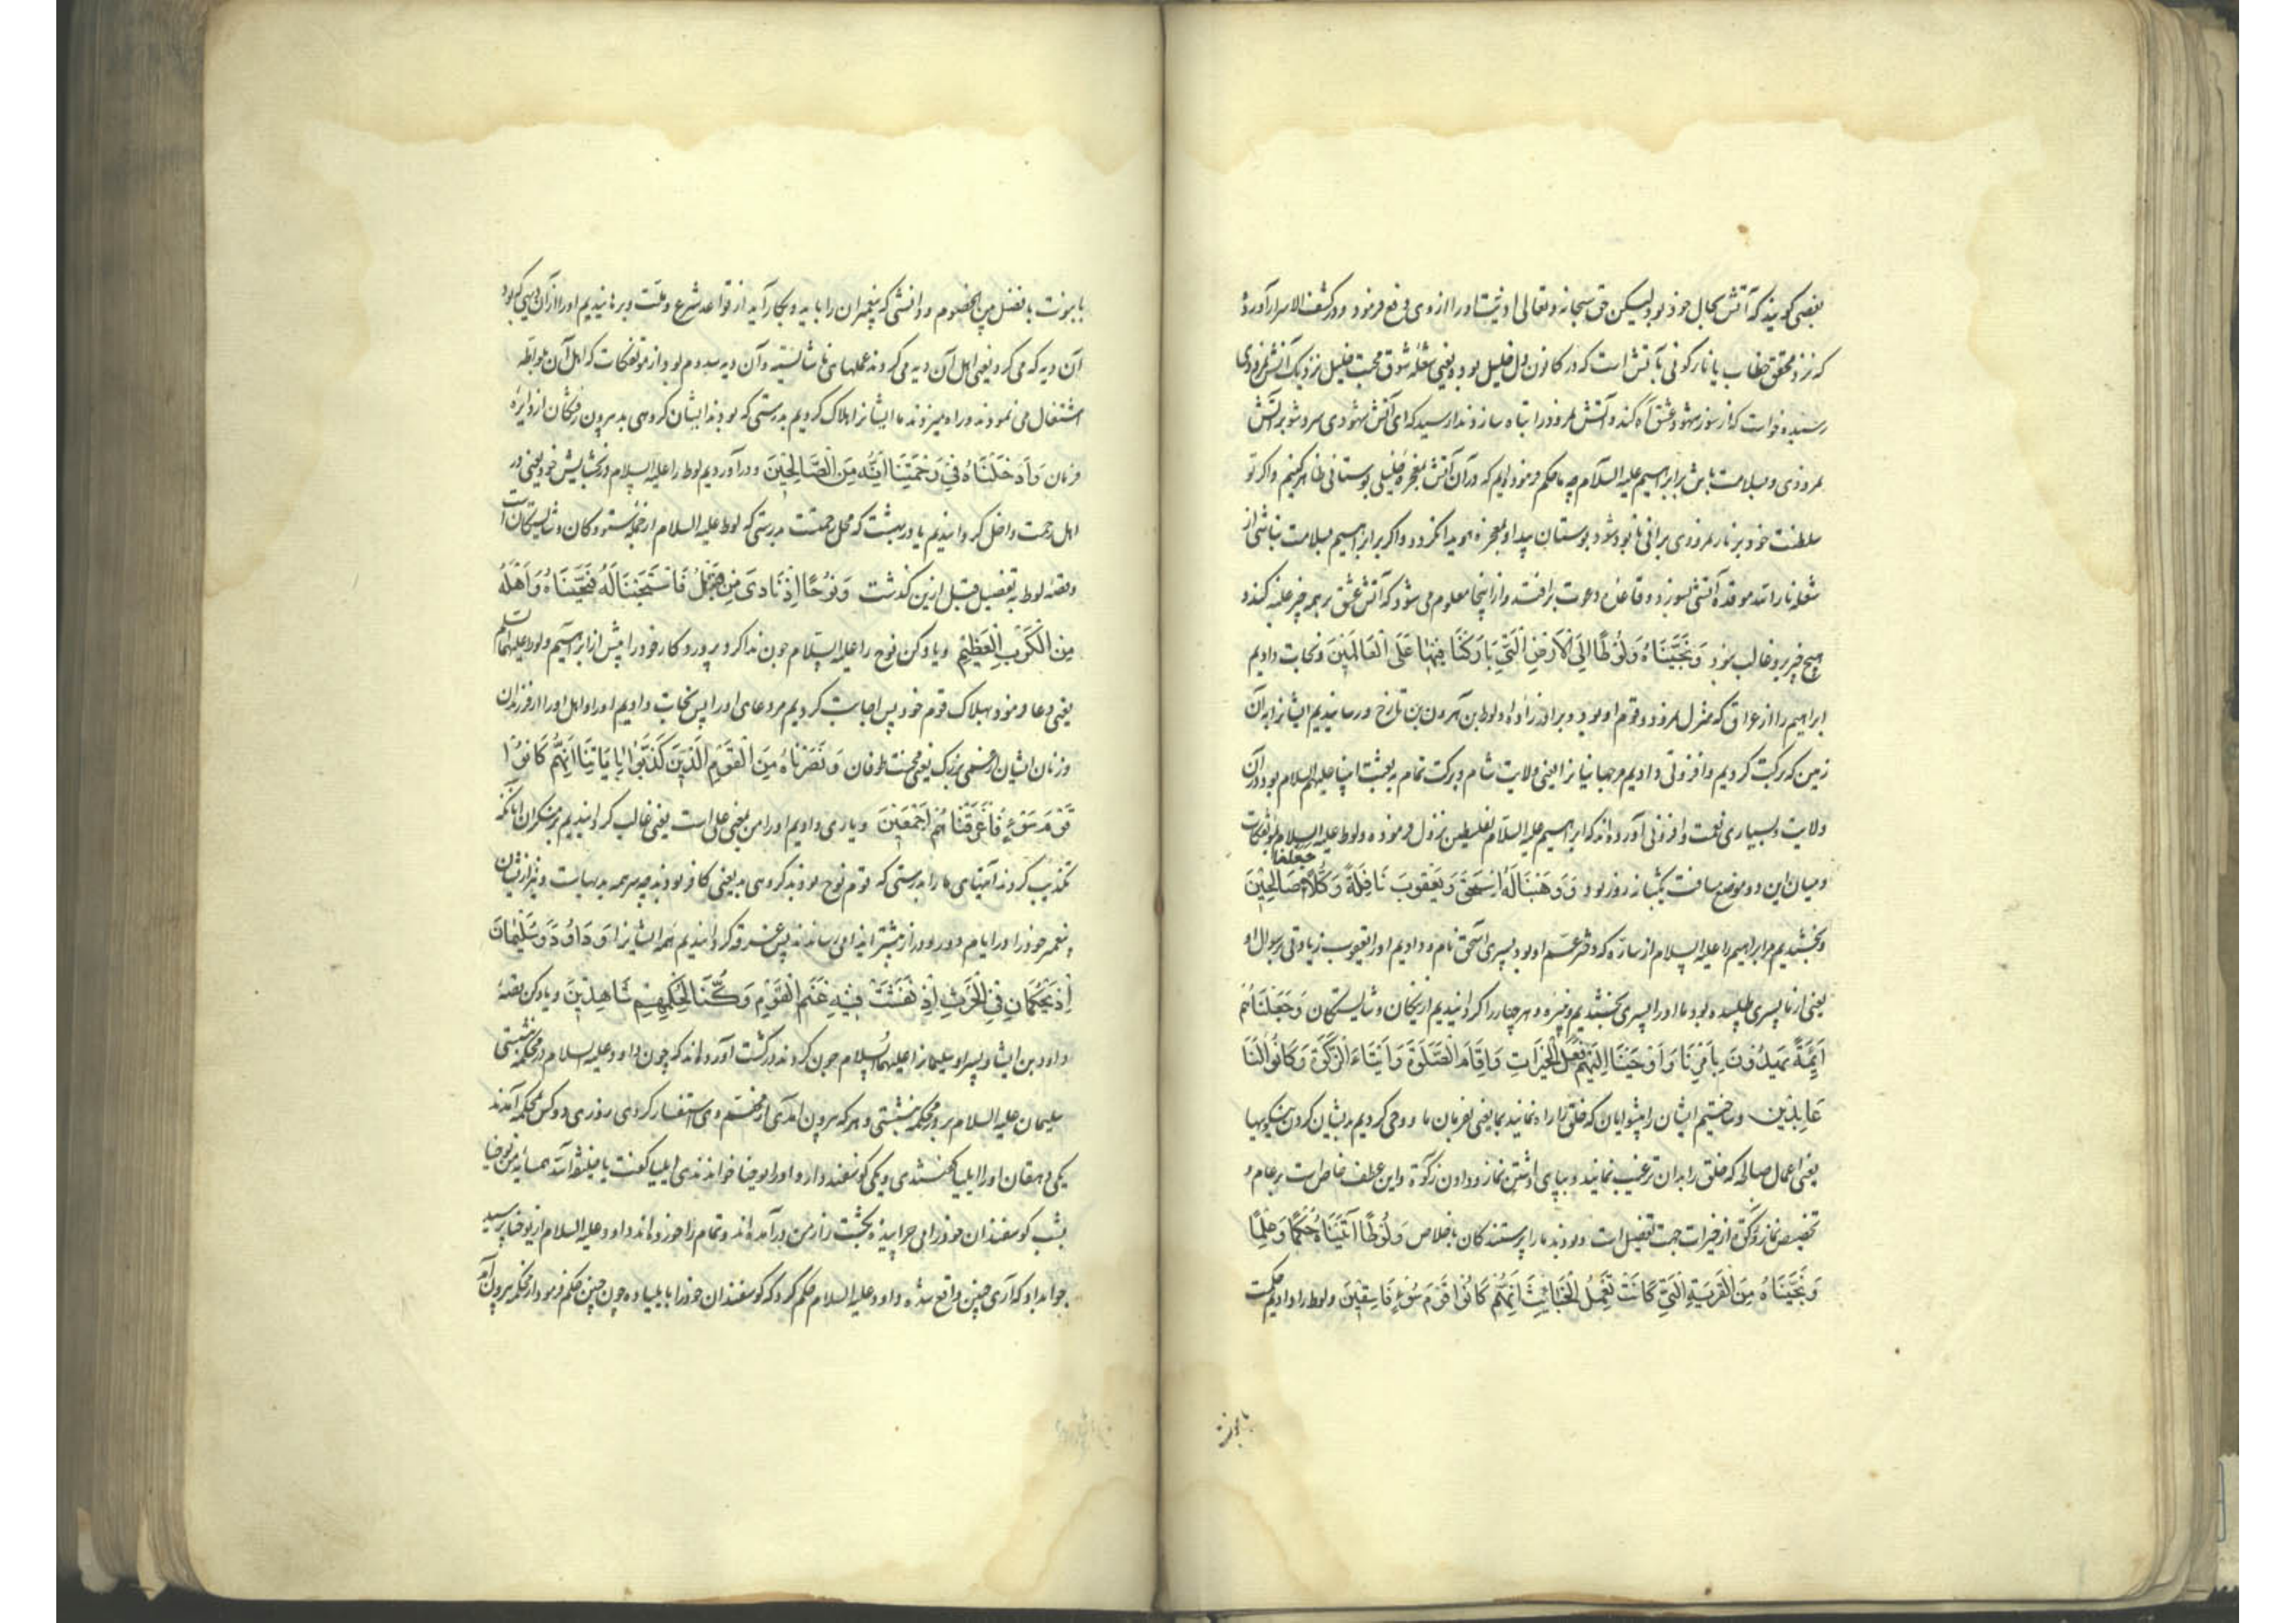 بعضی کویند که آتش بحال خود بود لیکن حق سبحانه وتعالی اذیت اورا ازوی دفع فرمود ودر کشف الاسرار آورده
که نزد محقق خطاب یا نار کونی بآتش است که در کانون دل خلیل بود یعنی شعله شوق محبت خلیل نزدیک آتش نمرودی
رسیده خواست که از سوز شهود عشق آه کند وآتش نمرود را تباه سازد ندا رسید که ای آتش شهودی سرد شو بر آتش
نمرودی وبسلامت باش بر ابراهیم علیه السلام چه ما حکم فرموده ایم که در آن آتش بمعجزه خلیلی بوستانی ظاهر کنیم واکر تو
سلطنت خود بر نار نمرودی برانی نابود شود وبوستان پیدا ومعجزه هویدا نکردد واکر بر ابراهیم بسلامت نباشی از
شعله نار الله موقده آتشی بسوزد وقاعده دعوت برافتد واز اینجا معلوم می شود که آتش عشق بر همه چیز غلبه کند و
هیچ چیز برو غالب نبود وَنَجَّیْنَاهُ وَلُوْطًا اِلَی الْاَرْضِ الَّتِیْ بَارَکْنَا فِیْهَا عَلَی الْعَالَمِیْنَ ونجات دادیم
ابراهیم را از عراق که منزل نمرود وقوم او بود وبرادرزاده او لوط بن هرون بن تارخ ورسانیدیم ایشانرا بدان
زمین که برکت کردیم وافزونی دادیم مر جهانیانرا یعنی ولایت شام وبرکت تمام به بعثت انبیا علیهم السلام بود در آن
ولایت وبسیاری نعمت وافزونی آورده اند که ابراهیم علیه السلام بفلسطین نزول فرموده ولوط علیه السلام بموتفکات
ومیان این دو موضع مسافت یکشبانه روز بود وَوَهَبْنَا لَهُ اِسْحٰقَ وَیَعْقُوبَ نَافِلَةً وَکُلًّا جعلنا صَالِحِیْنَ
وبخشیدیم مر ابراهیم را علیه السلام از ساره که دختر عم او بود پسری اسحق نام ودادیم اورا یعقوب زیادتی بر سوال او
یعنی از ما پسری طلبیده بود ما اورا پسری بخشیدیم ونبیره وهر چهار را کردانیدیم از نیکان وشایستکان وَجَعَلْنَاهُمْ
اَئِمَّةً یَهْدُوْنَ بِاَمْرِنَا وَاَوْحَیْنَا اِلَیْهِمْ فِعْلَ الْخَیْرَاتِ وَاِقَامَ الصَّلٰوةِ وَاِیْتَاءَ الزَّکٰوةِ وَکَانُوْا لَنَا
عَابِدِیْن وساختیم ایشان را پیشوایان که خلق را راه نمایند بما یعنی بفرمان ما ووحی کردیم بدیشان کردن نیکوییها
یعنی اعمال صالحه که خلق را بدان ترغیب نمایند وبپای داشتن نماز ودادن زکوة واین عطف خاص است بر عام و
تخصیص نماز وزکوة از خیرات جهت تفضیل است وبودند مارا پرستندکان باخلاص وَلُوْطًا اٰتَیْنَاهُ حُکْمًا وَعِلْمًا
وَنَجَّیْنَاهُ مِنَ الْقَرْیَةِ الَّتِیْ کَانَتْ تَعْمَلُ الْخَبَائِثَ اِنَّهُمْ کَانُوا قَوْمَ سَوْءٍ فَاسِقِیْنَ ولوط را دادیم حکمت
یا نبوت
یا نبوت یا فصل بین الخصوم ودانشی که پیغمبران را باید وبکار آید از قواعد شرع وملت وبرهانیدیم اورا از آن دیهی که بود
آن دیه که می کرد یعنی اهل آن دیه می کردند عملهای ناشایسته وآن دیه سدوم بود از موتفکات که اهل آن بلواطه
اشتغال می نمودند وراه میزدند ما ایشانرا هلاک کردیم بدرستی که بودند ایشان کروهی بد بیرون رفتکان از دایره
فرمان وَاَدْخَلْنَاهُ فِیْ رَحْمَتِنَا اِنَّهُ مِنَ الصَّالِحِیْنَ ودرآوردیم لوط را علیه السلام در بخشایش خود یعنی در
اهل رحمت داخل کردانیدیم یا در بهشت که محل رحمتست بدرستی که لوط علیه السلام از جمله ستودکان وشایستکان است
وقصه لوط به تفصیل قبل ازین کذشت وَنُوْحًا اِذْ نَادٰی مِنْ قَبْلُ فَاسْتَجَبْنَا لَهُ فَنَجَّیْنَاهُ وَاَهْلَهُ
مِنَ الْکَرْبِ الْعَظِیْمِ ویاد کن نوح را علیه السلام چون ندا کرد پروردکار خود را پیش از ابراهیم ولوط علیهما السلام
یعنی دعا فرمود بهلاک قوم خود پس اجابت کردیم مر دعای اورا پس نجات دادیم اورا واهل اورا از فرزندان
وزنان ایشان از غمی بزرک یعنی محنت طوفان وَنَصَرْنَاهُ مِنَ الْقَوْمِ الَّذِیْنَ کَذَّبُوْا بِاٰیَاتِنَا اِنَّهُمْ کَانُوْا
قَوْمَ سَوْءٍ فَاَغْرَقْنَاهُمْ اَجْمَعِیْنَ ویاری دادیم اورا من بمعنی علی است یعنی غالب کردانیدیم بر منکران آنانکه
تکذیب کردند آیتهای مارا بدرستی که قوم نوح بودند کروهی بد یعنی کافر بودند چه سر همه بدیهاست
پیغمبر خود را در ایام دور ودراز بیشتر ایذا می رساندند پس غرقه کردانیدیم همه ایشانرا وَدَاوُدَ وَسُلَیْمَانَ
اِذْ یَحْکُمَانِ فِی الْحَرْثِ اِذْ نَفَشَتْ فِیْهِ غَنَمُ الْقَوْمِ وَکُنَّا لِحُکْمِهِمْ شَاهِدِیْنَ ویاد کن قصه
داود بن ایشا وپسر او سلیمانرا علیهما السلام چون حکم کردند در کشت آورده اند که چون داود علیه السلام در محکمه نشستی
سلیمان علیه السلام بر در محکمه نشستی وهر که بیرون آمدی از مهم وی استفسار کردی روزی دو کس بمحکمه آمدند
یکی دهقان اورا ایلیا کفتندی ویکی کوسفنددار واورا یوحنا خواندندی ایلیا کفت یا خلیفة الله همسایه من یوحنا
بشب کوسفندان خود را می چرانیده بکشت زار من درآمده اند وتمام را خورده اند داود علیه السلام از یوحنا پرسید
جواب داد که آری چنین واقع شده داود علیه السلام حکم کرد که کوسفندان خود را بایلیا ده چون چنین حکم فرمود از محکمه بیرون آمد